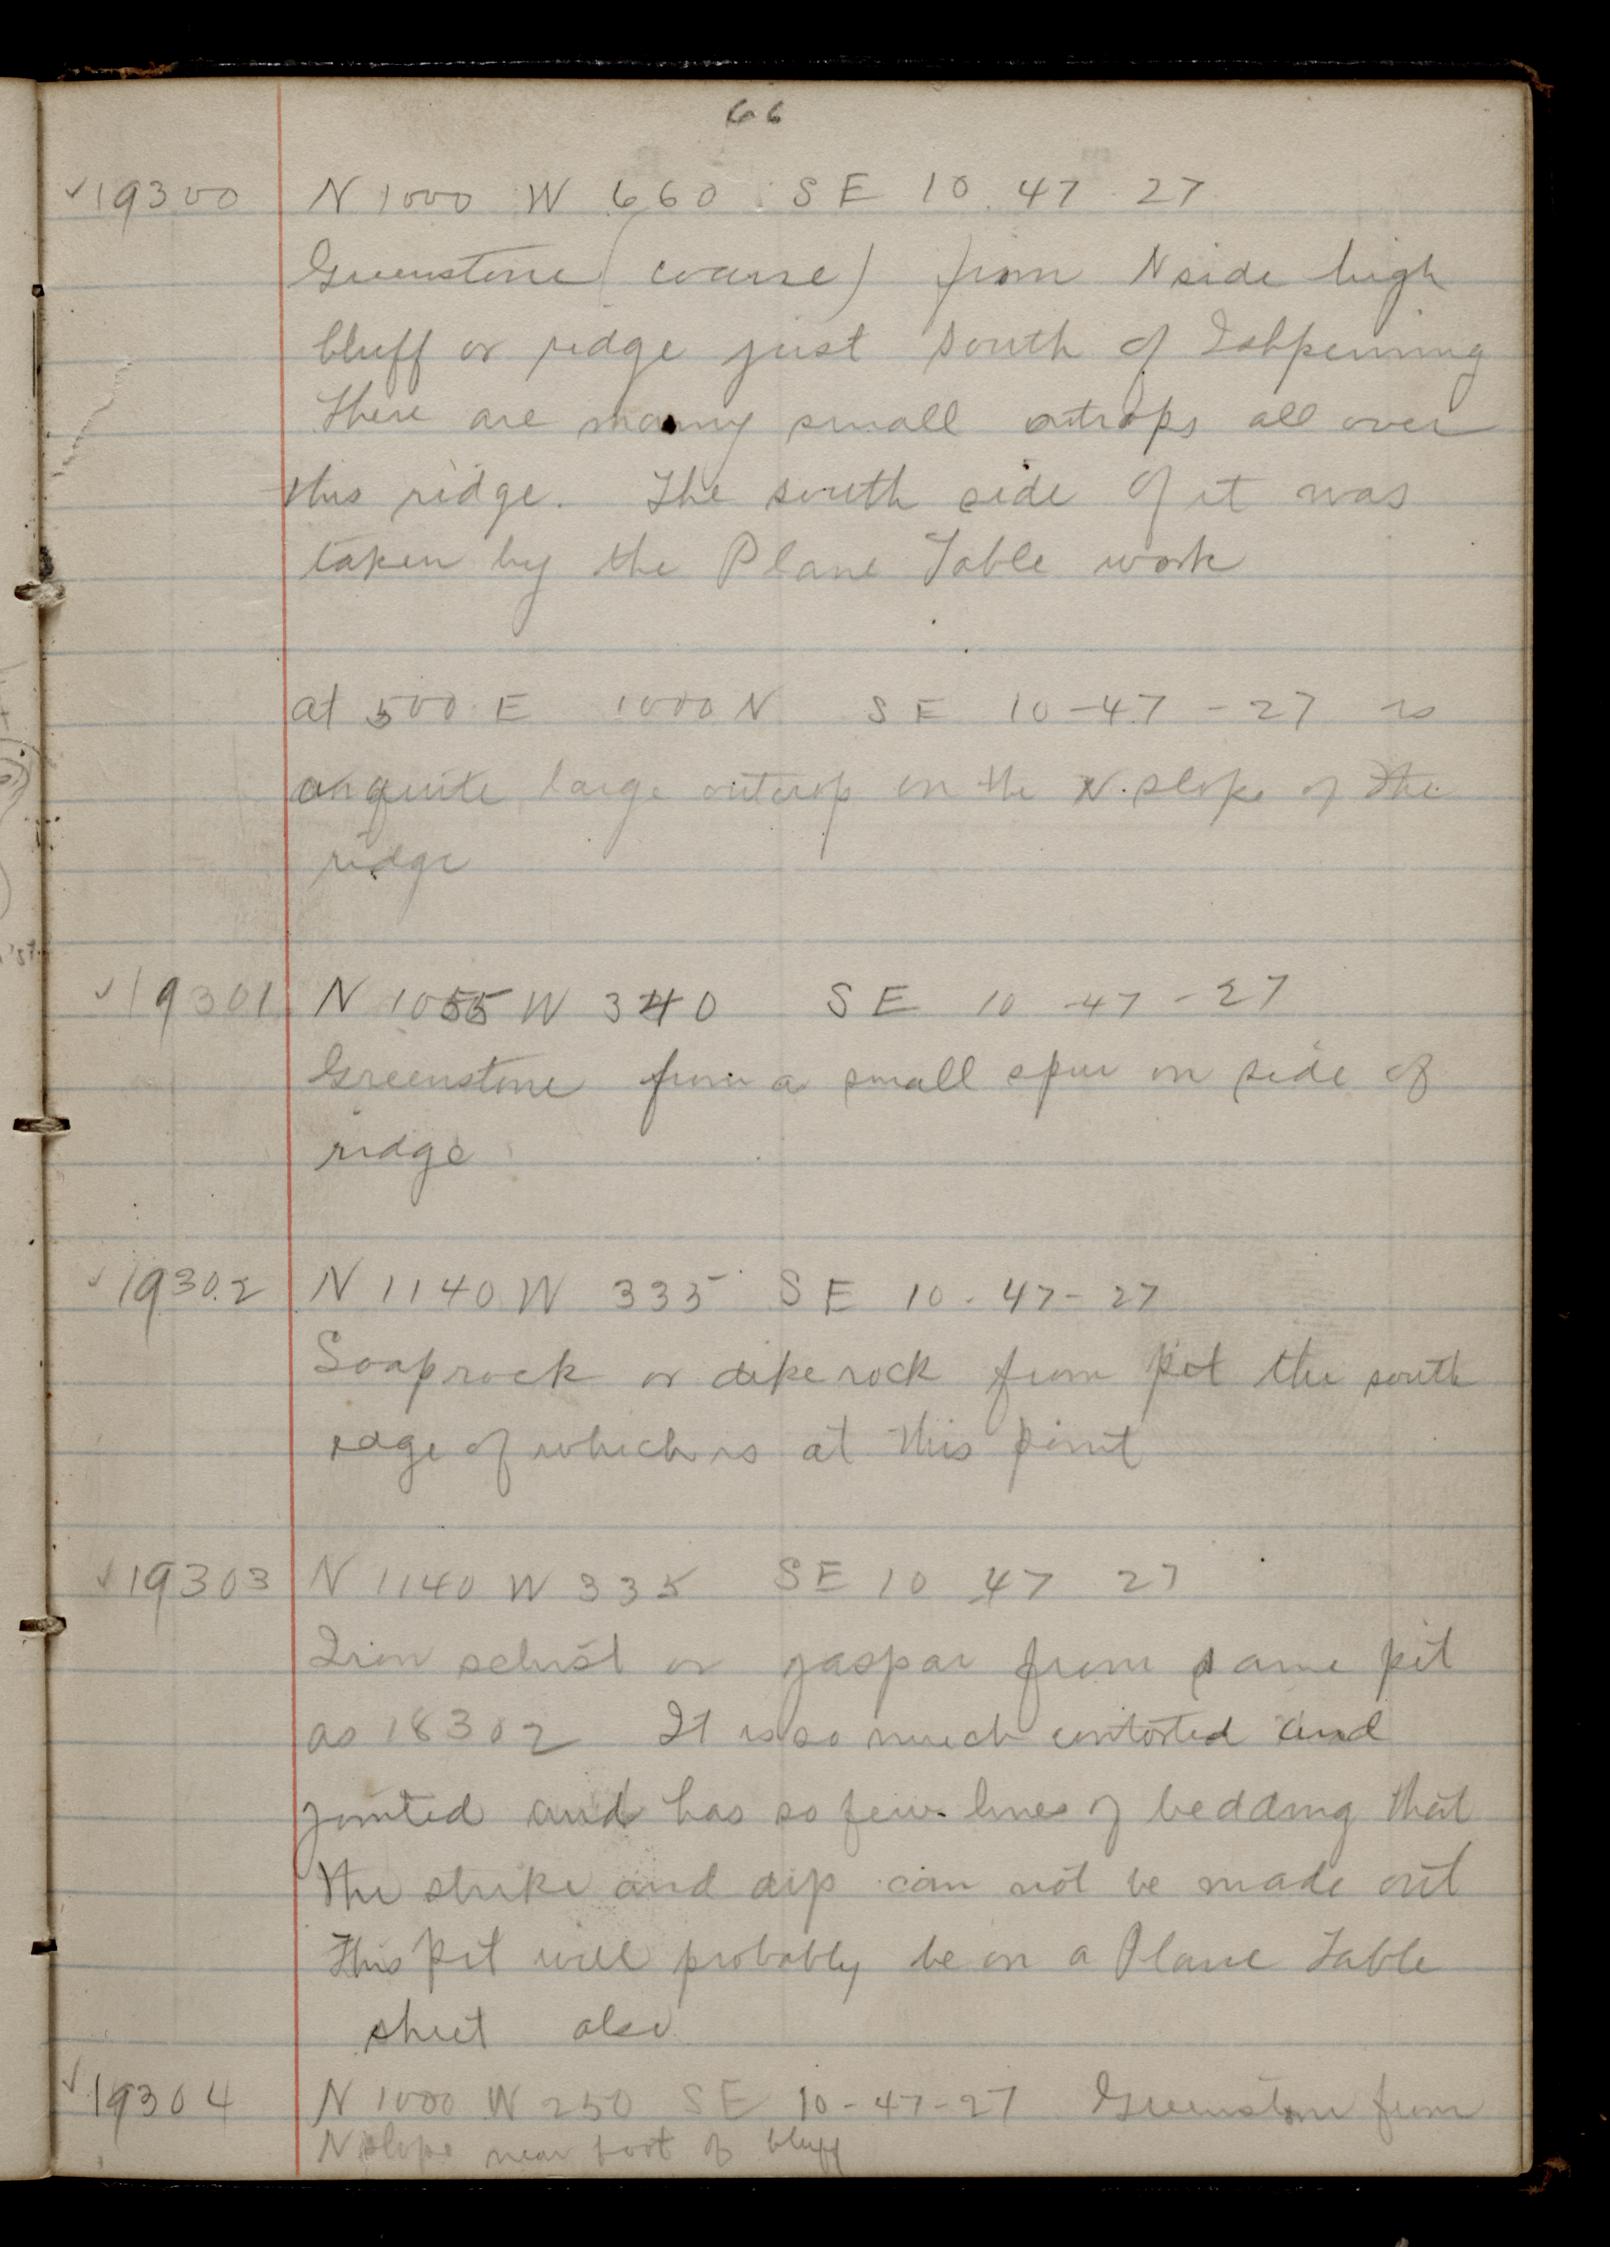 66
19300 N 1000 W 660 SE 10 47 27
Greenstone (coarse) from N side high
bluff or ridge just south of Ishpeming
There are many small outcrops all over
this ridge. The south side of it was
taken by the Plane Table work
at 500 E 1000 N SE 10-47-27 is
quite large outcrop on the N. slope of the
ridge
19301 N 1055 W 340 SE 10-47-27
Greenstone from a small spur on side of
ridge
19302 N 1140 W 335 SE 10-47-27
Soaprock or dike rock from pit the south
edge of which is at this point
19303 N 1140 W 335 SE 10 47 27
Iron schist or jaspar from same pit
as 18302 It is so much contorted and
jointed and has so few lines of bedding that
the strike and dip can not be made out
This pit will probably be on a Plane Table
sheet also
19304 N 1000 W 250 SE 10-47-27 Greenstone from
N slope near foot of bluff